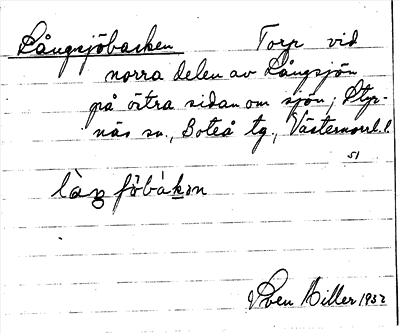 Långsjöbacken Torp vid
norra delen av Långsjön
på östra sidan om sjön; Styr-
näs sn., Boteå tg., Västernorrl. l.
51
Sven Miller 1932